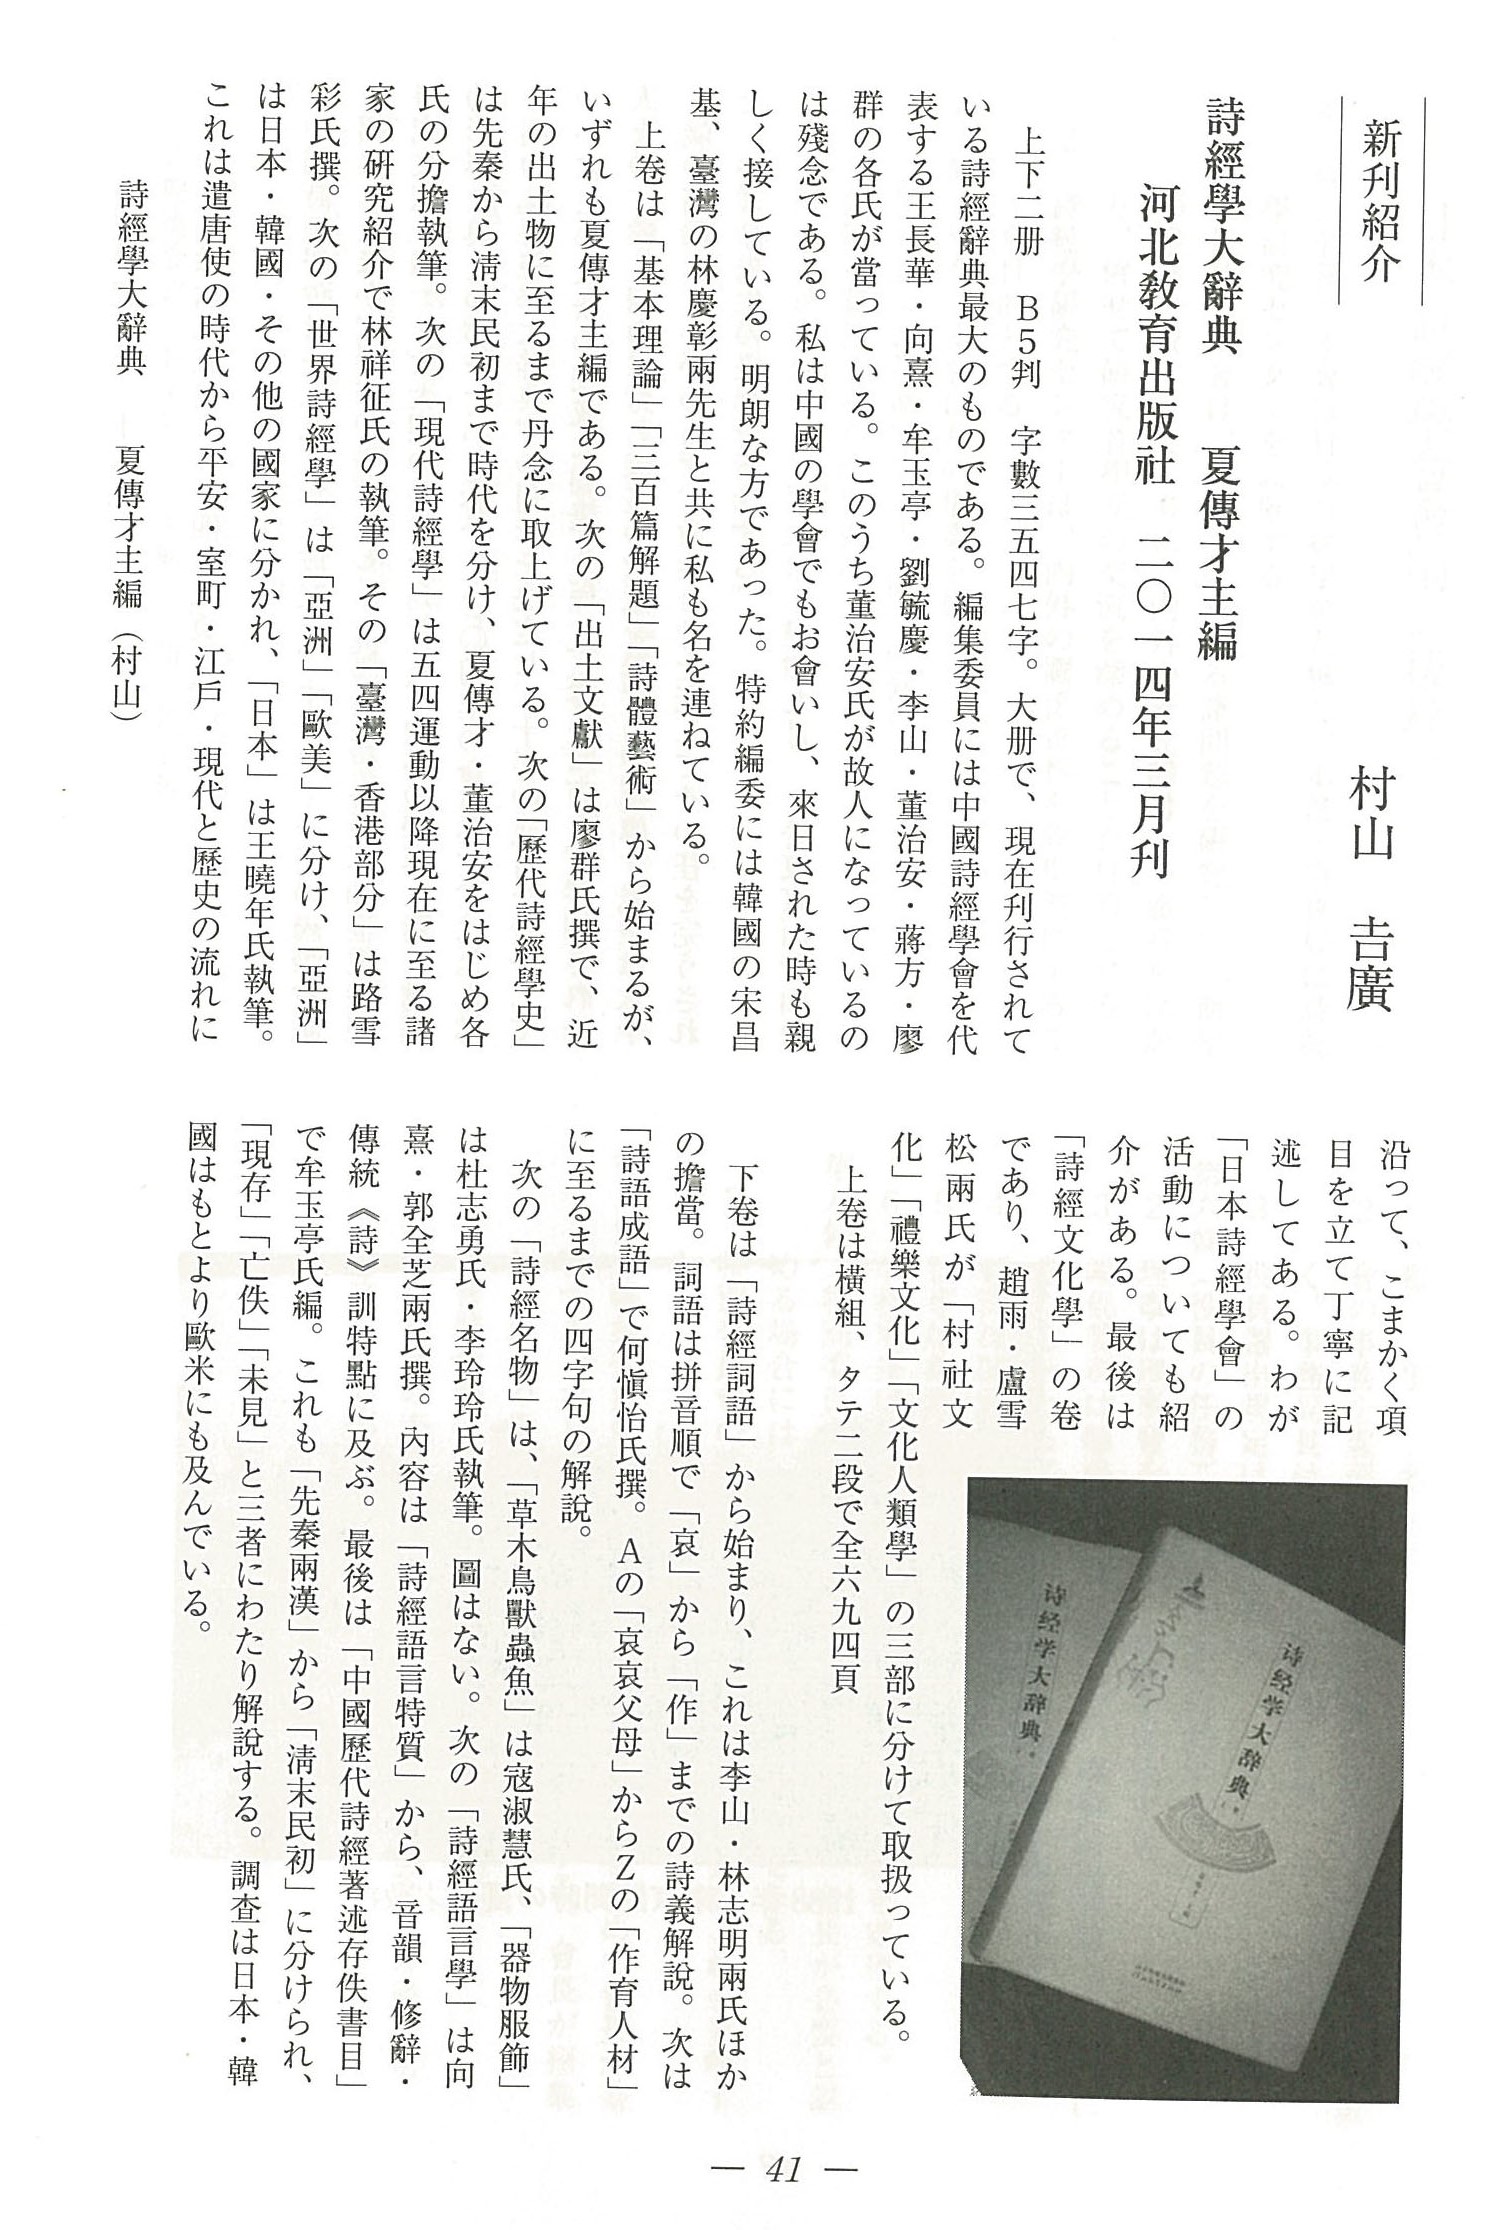 新刊紹介
村山　吉廣
詩經學大辭典　　夏傳才主編
河北敎育出版社　二〇一四年三月刊
上下二册　Ｂ５判　字數三五四七字。大册で、現在刊行されて
いる詩經辭典最大のものである。編集委員には中國詩經學會を代
表する王長華・向熹・牟玉亭・劉毓慶・李山・董治安・蔣方・廖
群の各氏が當っている。このうち董治安氏が故人になっているの
は殘念である。私は中國の學會でもお會いし、來日された時も親
しく接している。明朗な方であった。特約編委には韓國の宋昌
基、臺灣の林慶彰兩先生と共に私も名を連ねている。
上卷は「基本理論」「三百篇解題」「詩體藝術」から始まるが、
いずれも夏傳才主編である。次の「出土文獻」は廖群氏撰で、近
年の出土物に至るまで丹念に取上げている。次の「歷代詩經學史」
は先秦から淸末民初まで時代を分け、夏傳才・董治安をはじめ各
氏の分擔執筆。次の「現代詩經學」は五四運動以降現在に至る諸
家の硏究紹介で林祥征氏の執筆。その「臺灣・香港部分」は路雪
彩氏撰。次の「世界詩經學」は「亞洲」「歐美」に分け、「亞洲」
は日本・韓國・その他の國家に分かれ、「日本」は王曉年氏執筆。
これは遣唐使の時代から平安・室町・江戶・現代と歷史の流れに
沿って、こまかく項
目を立て丁寧に記
述してある。わが
「日本詩經學會」の
活動についても紹
介がある。最後は
「詩經文化學」の卷
であり、趙雨・盧雪
松兩氏が「村社文
化」「禮樂文化」「文化人類學」の三部に分けて取扱っている。
上卷は橫組、タテ二段で全六九四頁
下卷は「詩經詞語」から始まり、これは李山・林志明兩氏ほか
の擔當。詞語は拼音順で「哀」から「作」までの詩義解說。次は
「詩語成語」で何愼怡氏撰。Ａの「哀哀父母」からＺの「作育人材」
に至るまでの四字句の解說。
次の「詩經名物」は、「草木鳥獸蟲魚」は寇淑慧氏、「器物服飾」
は杜志勇氏・李玲玲氏執筆。圖はない。次の「詩經語言學」は向
熹・郭全芝兩氏撰。內容は「詩經語言特質」から、音韻・修辭・
傳統《詩》訓特點に及ぶ。最後は「中國歷代詩經著述存佚書目」
で牟玉亭氏編。これも「先秦兩漢」から「淸末民初」に分けられ、
「現存」「亡佚」「未見」と三者にわたり解說する。調查は日本・韓
國はもとより歐米にも及んでいる。
诗经学大辞典
诗经学大辞典
詩經學大辭典　　夏傳才主編（村山）
— 41 —